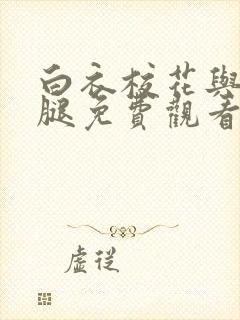 白衣校花與
腿免費觀看
虛従